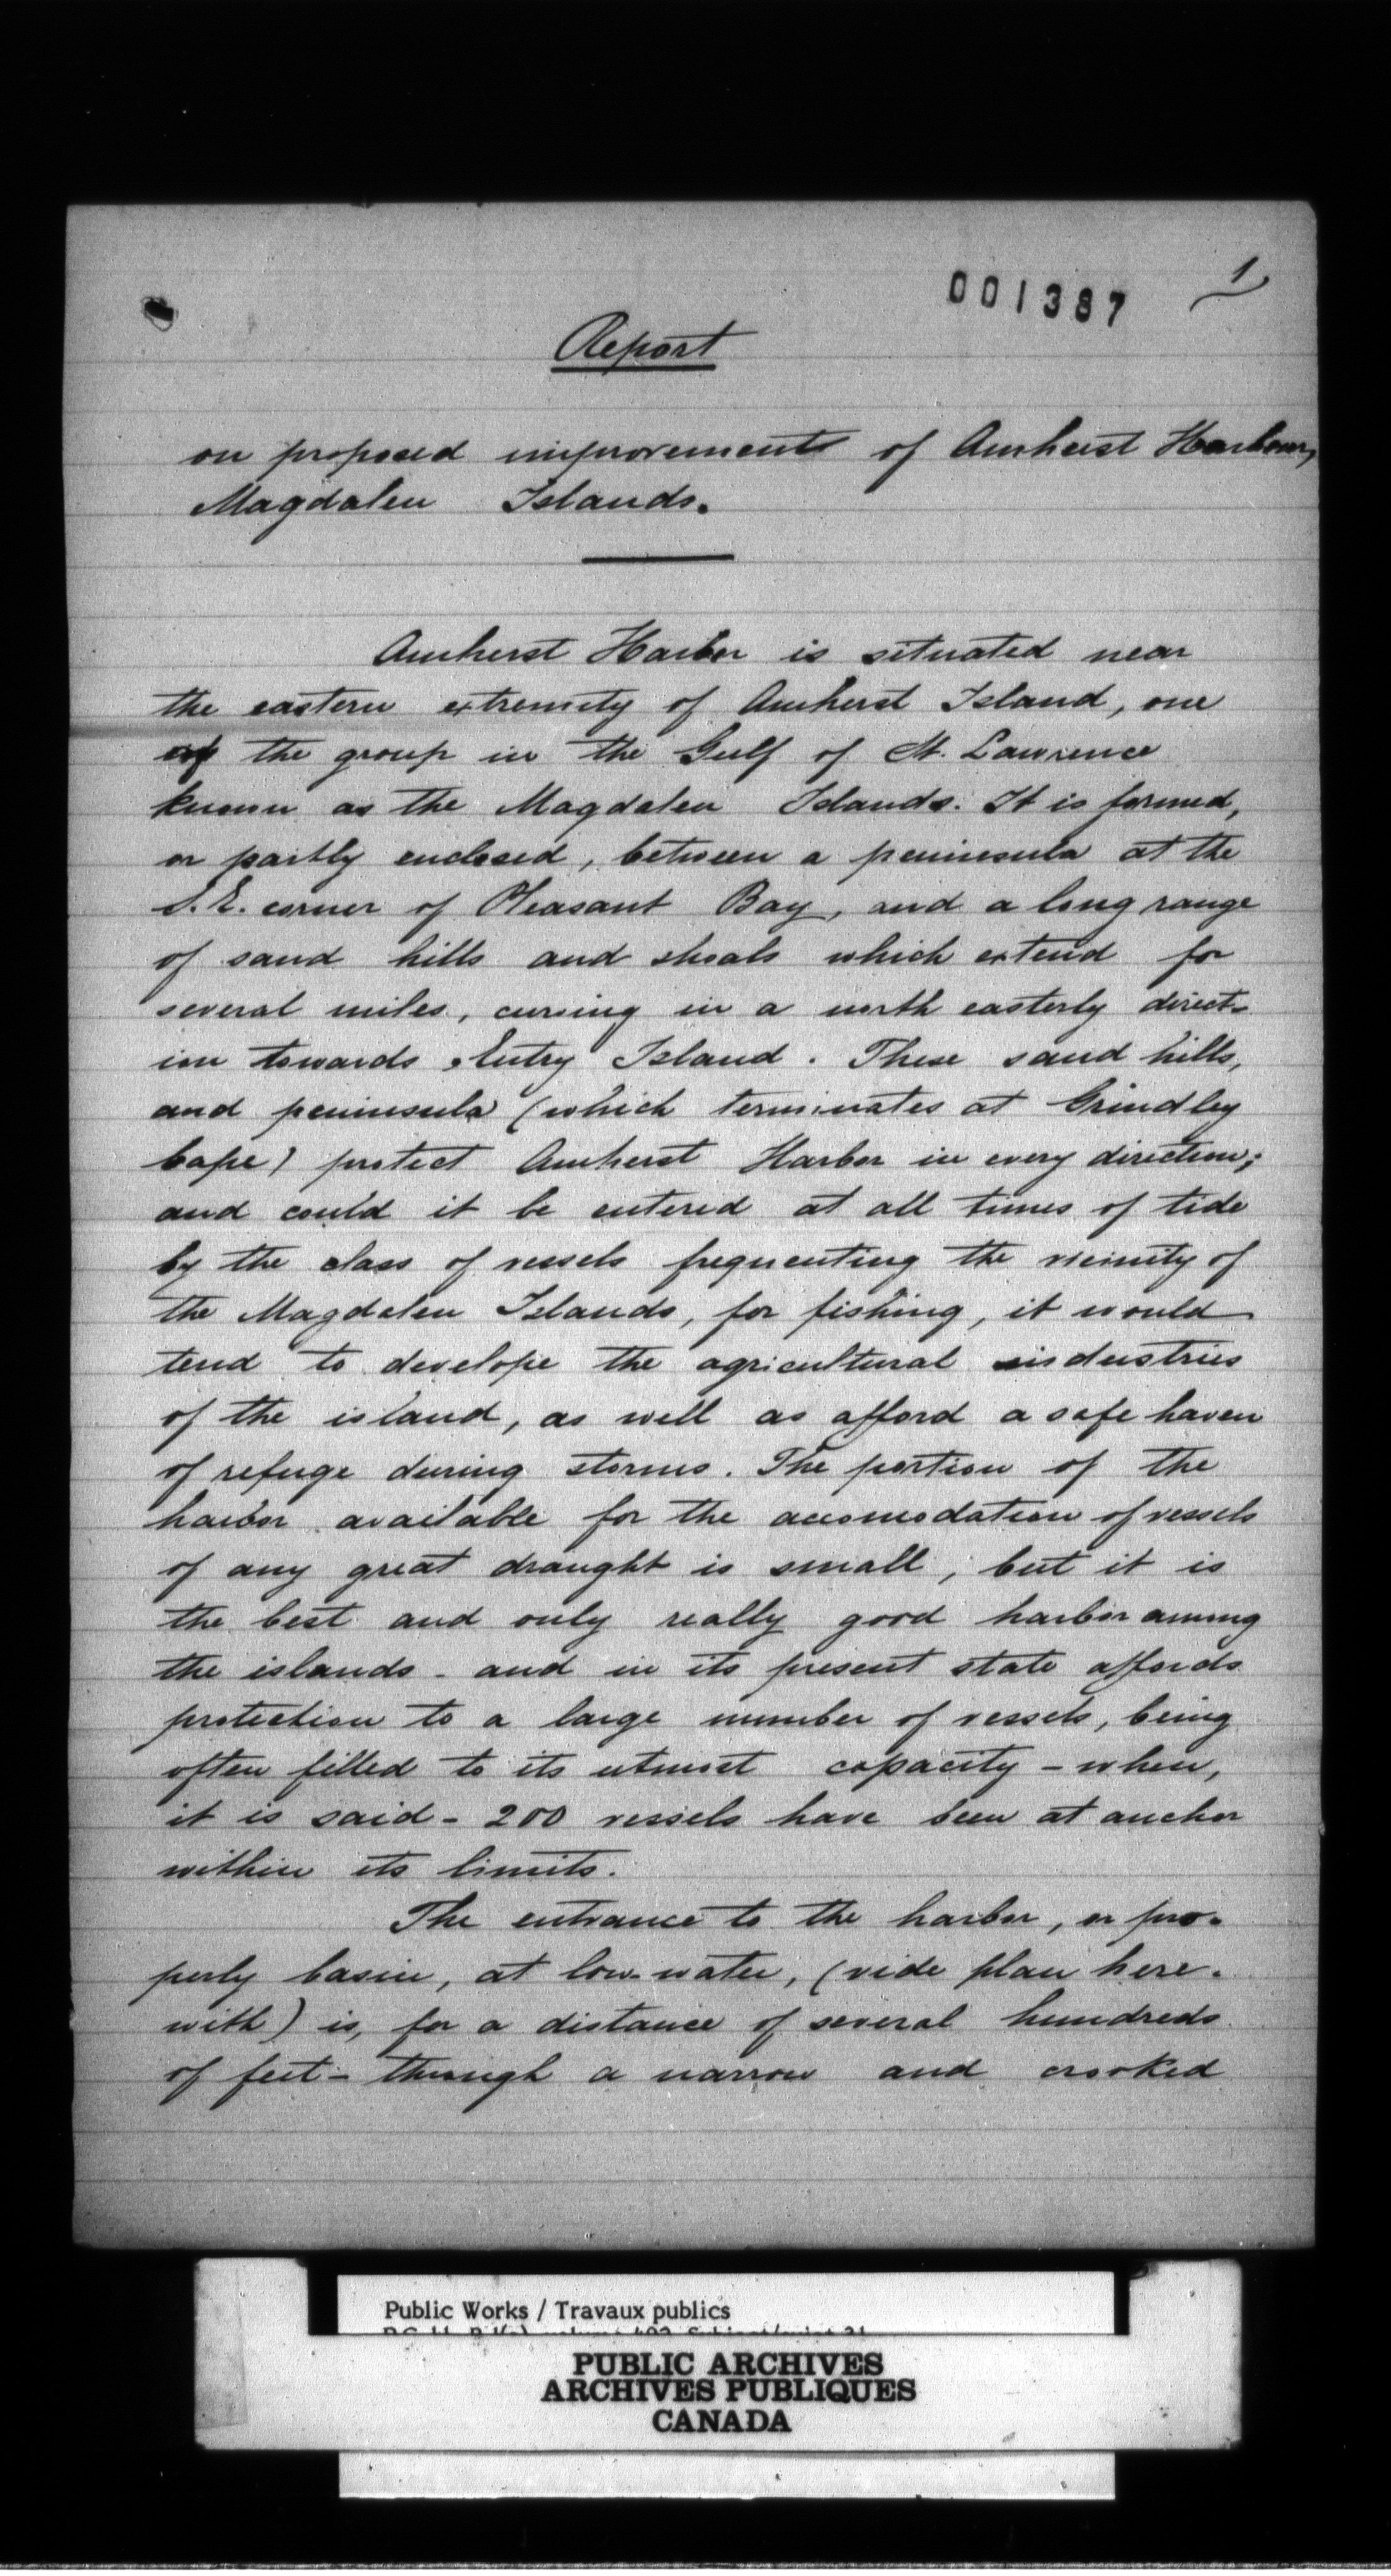 001387
1
Report
on proposed improvements of Amherst Harbour,
Magdalen Islands.
Amherst Harbor is situated near
the eastern extremity of Amherst Island, one
of the group in the Gulf of St. Lawrence
known as the Magdalen Islands. It is formed,
or partly enclosed, between a peninsula at the
S.E. corner of Pleasant Bay, and a long range
of sand hills and shoals which extend for
several miles, curving in a north easterly direct-
ion towards Entry Island. These sand hills,
and peninsula (which terminates at Grindley
Cape) protect Amherst Harbor in every direction;
and could it be entered at all times of tide
by the class of vessels frequenting the vicinity of
the Magdalen Islands, for fishing, it would
tend to develope the agricultural industries
of the island, as well as afford a safe haven
of refuge during storms. The portion of the
harbor available for the accomodation of vessels
of any great draught is small, but it is
the best and only really good harbor among
the islands - and in its present state affords
protection to a large number of vessels, being
often filled to its utmost capacity - when,
it is said - 200 vessels have been at anchor
within its limits.
The entrance to the harbor, or pro-
perly basin, at low-water, (vide plan here-
with) is, for a distance of several hundreds
of feet - through a narrow and crooked
Public Works / Travaux publics
PUBLIC ARCHIVES
ARCHIVES PUBLIQUES
CANADA